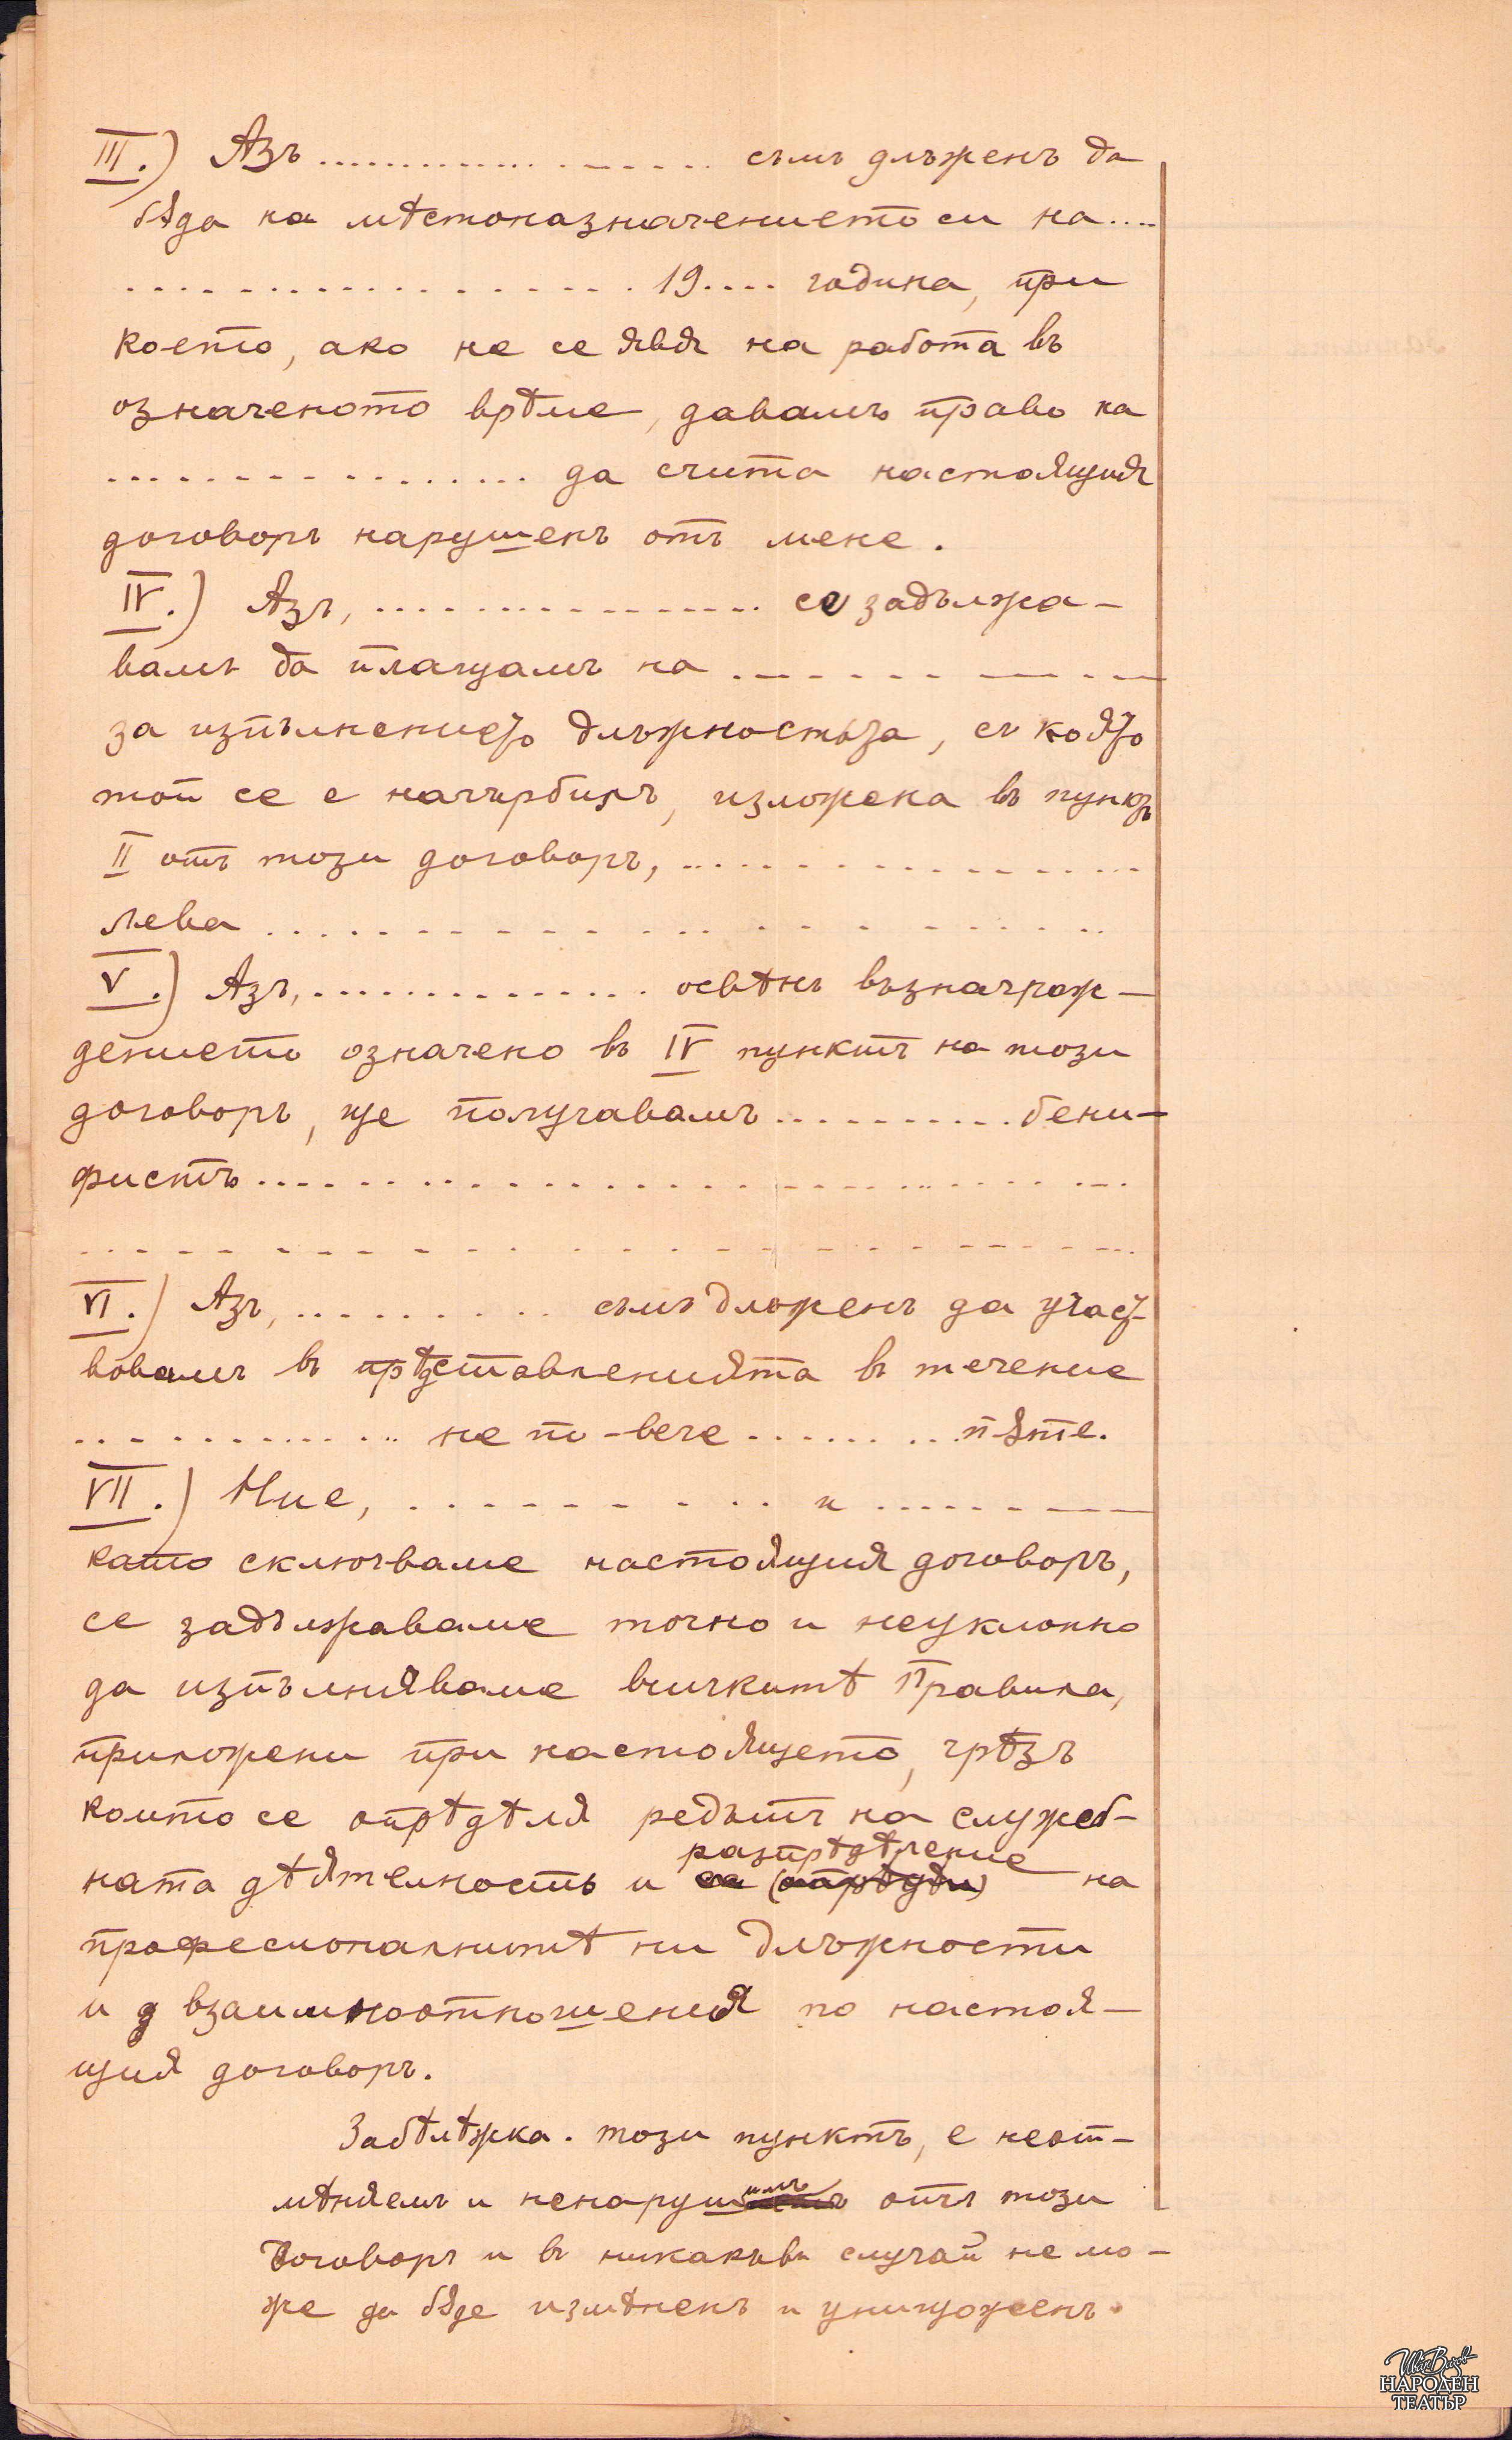 III.) Азъ .......................... съмъ длъженъ да
бѫда на мѣстоназначението си на....
..................... 19.... година, при
което, ако не се явя на работа въ
означеното врѣме, давамъ право на
.................. да счита настоящия
договоръ нарушенъ отъ мене.
IV.) Азъ, ................... се задължа-
вамъ да плащамъ на ...............
за изпълнението длъжностьта, съ която
той се е нагърбилъ, изложена въ пунктъ
II отъ този договоръ, ..................
лева ..............................
V.) Азъ, ................ освѣнъ възнаграж-
дението означено въ IV пунктъ на този
договоръ, ще получавамъ ........... бени-
фистъ ..............................
..............................
VI.) Азъ, ............ съмъ длъженъ да участ-
вовамъ въ прѣдставленията въ течение
............... не по-вече .......... пѫте.
VII.) Ние, ............... и ............
като сключваме настоящия договоръ,
се задължаваме точно и неуклонно
да изпълняваме всичкитѣ Правила,
приложени при настоящето, чрѣзъ
които се опрѣдѣля редътъ на служеб-
разпрѣдѣление
ната дѣятелность и се (опрѣдѣли) на
професионалнитѣ ни длъжности
и д взаимноотношения по настоя-
щия договоръ.
Забѣлѣжка. този пунктъ, е неот-
мѣняемъ и ненарушимъ отъ този
Договоръ и въ никакъвъ случай не мо-
же да бѫде измѣненъ и унищоженъ.
Иван Вазов
НАРОДЕН
ТЕАТЪР